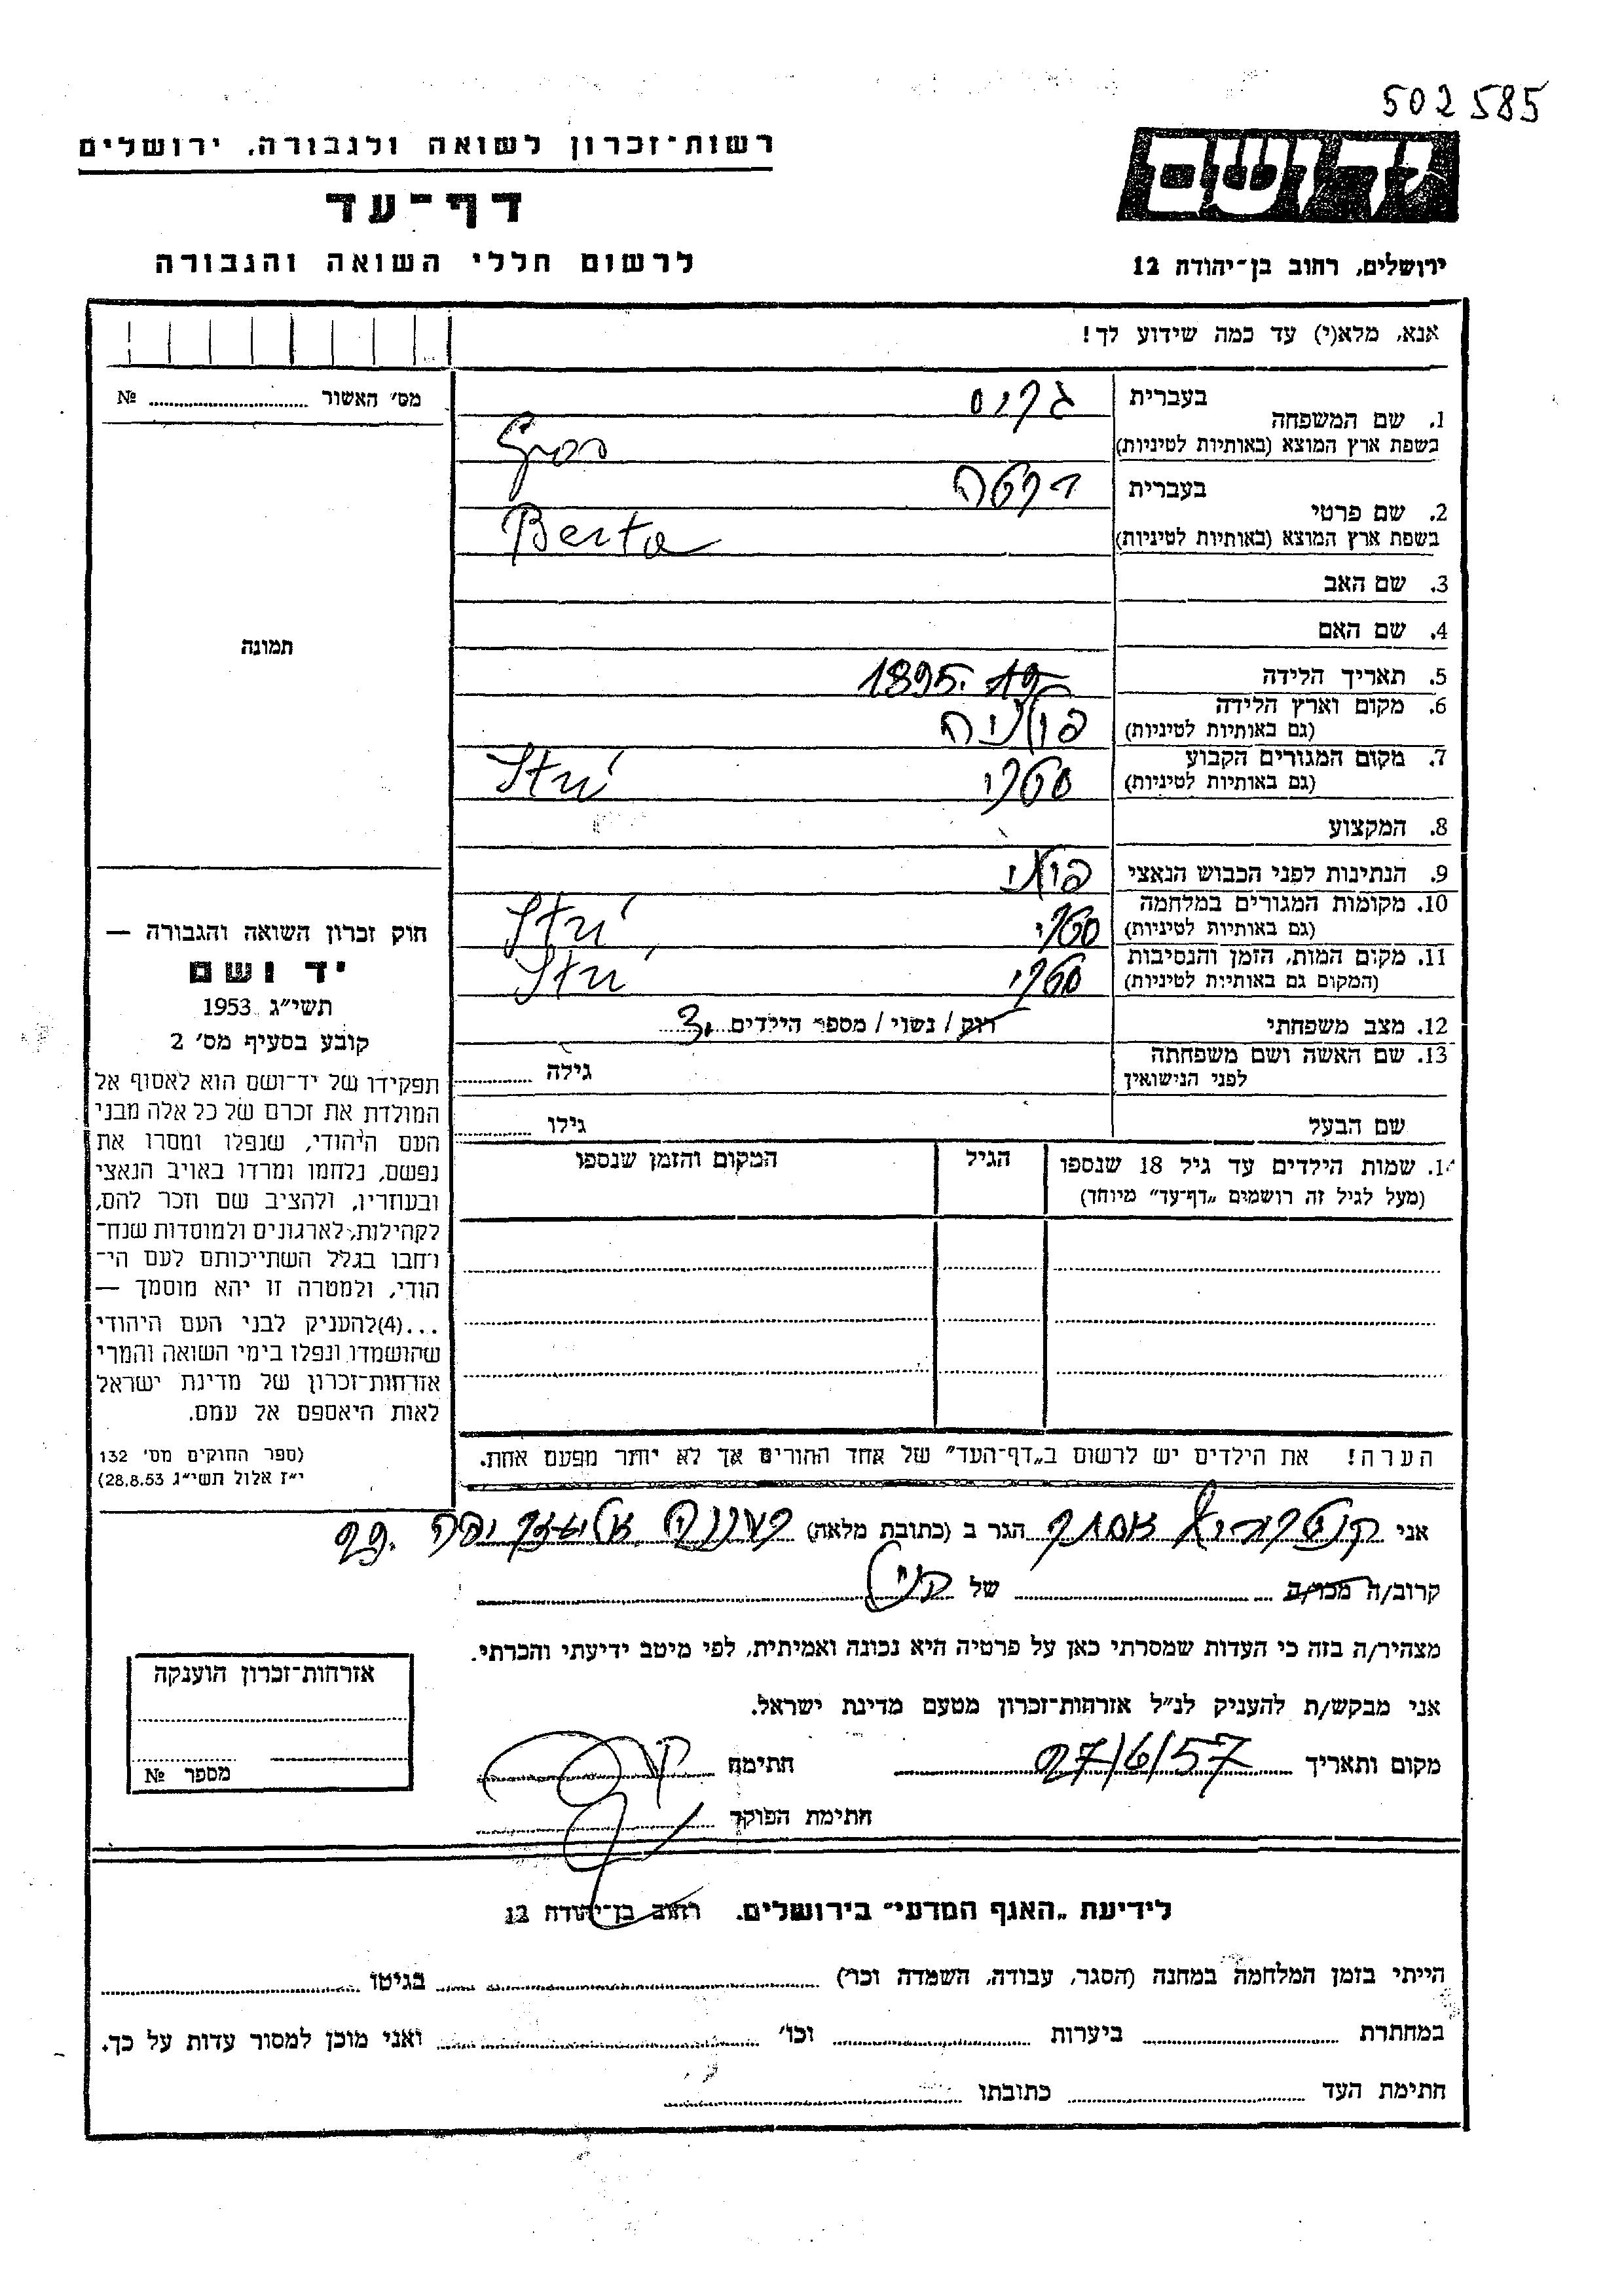 502585
רשות־זכרון לשואה ולגבורה, ירושלים
דף־עד
לרשום חללי השואה והגבורה
ידושם
ירושלים, רחוב בן־יהודה 12
אנא, מלא(י) עד כמה שידוע לך!
מס׳ האשור № 
תמונה
1. שם המשפחה בעברית גרוס
בשפת ארץ המוצא (באותיות לטיניות) Gros
2. שם פרטי בעברית ברטה
בשפת ארץ המוצא (באותיות לטיניות) Berta
3. שם האב
4. שם האם
5. תאריך הלידה 1895
6. מקום וארץ הלידה פולניה
(גם באותיות לטיניות)
7. מקום המגורים הקבוע סטרי Stri
(גם באותיות לטיניות)
8. המקצוע
9. הנתינות לפני הכבוש הנאצי פולני
10. מקומות המגורים במלחמה סטרי Stri
(גם באותיות לטיניות)
11. מקום המות, הזמן והנסיבות סטרי Stri
(המקום גם באותיות לטיניות)
12. מצב משפחתי רוק / נשוי / מספר הילדים 3
13. שם האשה ושם משפחתה גילה
לפני הנישואין
שם הבעל גילו
14. שמות הילדים עד גיל 18 שנספו הגיל המקום והזמן שנספו
(מעל לגיל זה רושמים „דף־עד״ מיוחד)
הערה! את הילדים יש לרשום ב„דף־העד״ של אחד ההורים אך לא יותר מפעם אחת.
חוק זכרון השואה והגבורה —
יד ושם
תשי״ג 1953
קובע בסעיף מס׳ 2
תפקידו של יד־ושם הוא לאסוף אל
המולדת את זכרם של כל אלה מבני
העם היהודי, שנפלו ומסרו את
נפשם, נלחמו ומרדו באויב הנאצי
ובעוזריו, ולהציב שם וזכר להם,
לקהילות, לארגונים ולמוסדות שנח־
רחבו בגלל השתייכותם לעם הי־
הודי, ולמטרה זו יהא מוסמך —
...(4)להעניק לבני העם היהודי
שהושמדו ונפלו בימי השואה והמרי
אזרחות־זכרון של מדינת ישראל
לאות היאספם אל עמם.
(ספר החוקים מס׳ 132
י״ז אלול תשי״ג 28.8.53)
אני אסתר הגר ב (כתובת מלאה)
קרוב/ה מכר/ה של
מצהיר/ה בזה כי העדות שמסרתי כאן על פרטיה היא נכונה ואמיתית, לפי מיטב ידיעתי והכרתי.
אני מבקש/ת להעניק לנ״ל אזרחות־זכרון מטעם מדינת ישראל.
מקום ותאריך 27/6/57 חתימה
חתימת הפוקד
אזרחות־זכרון הוענקה
מספר №
לידיעת „האגף המדעי״ בירושלים, רחוב בן־יהודה 12
הייתי בזמן המלחמה במחנה (הסגר, עבודה, השמדה וכו׳) בגיטו
במחתרת ביערות וכו׳ ואני מוכן למסור עדות על כך.
חתימת העד כתובתו